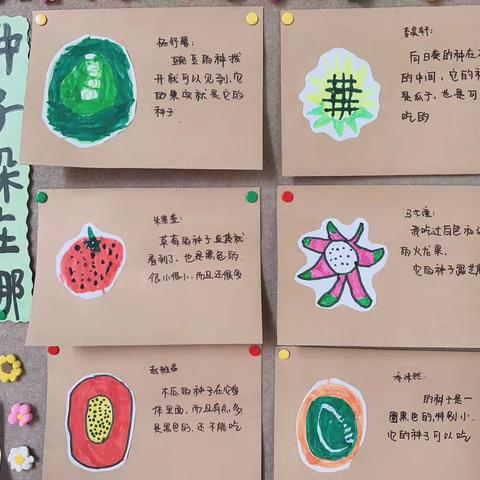 种子躲在哪
杨舒蕴：
豌豆的种拨
开就可以见到，它
的果实就是它的
种子
李昊轩：
向日葵的种在
的中间，它的种
是瓜子，也是可
吃的
草莓的种子直接就
看到了，也是黑色的，
很小很小，而且还很多
我吃过白色和
的火龙果，
它的种子
木瓜的种子在它身
体里面，而且有点多
是黑色的，还不能吃
的种子是一
圈黑色的，特别小，
它的种子可以吃